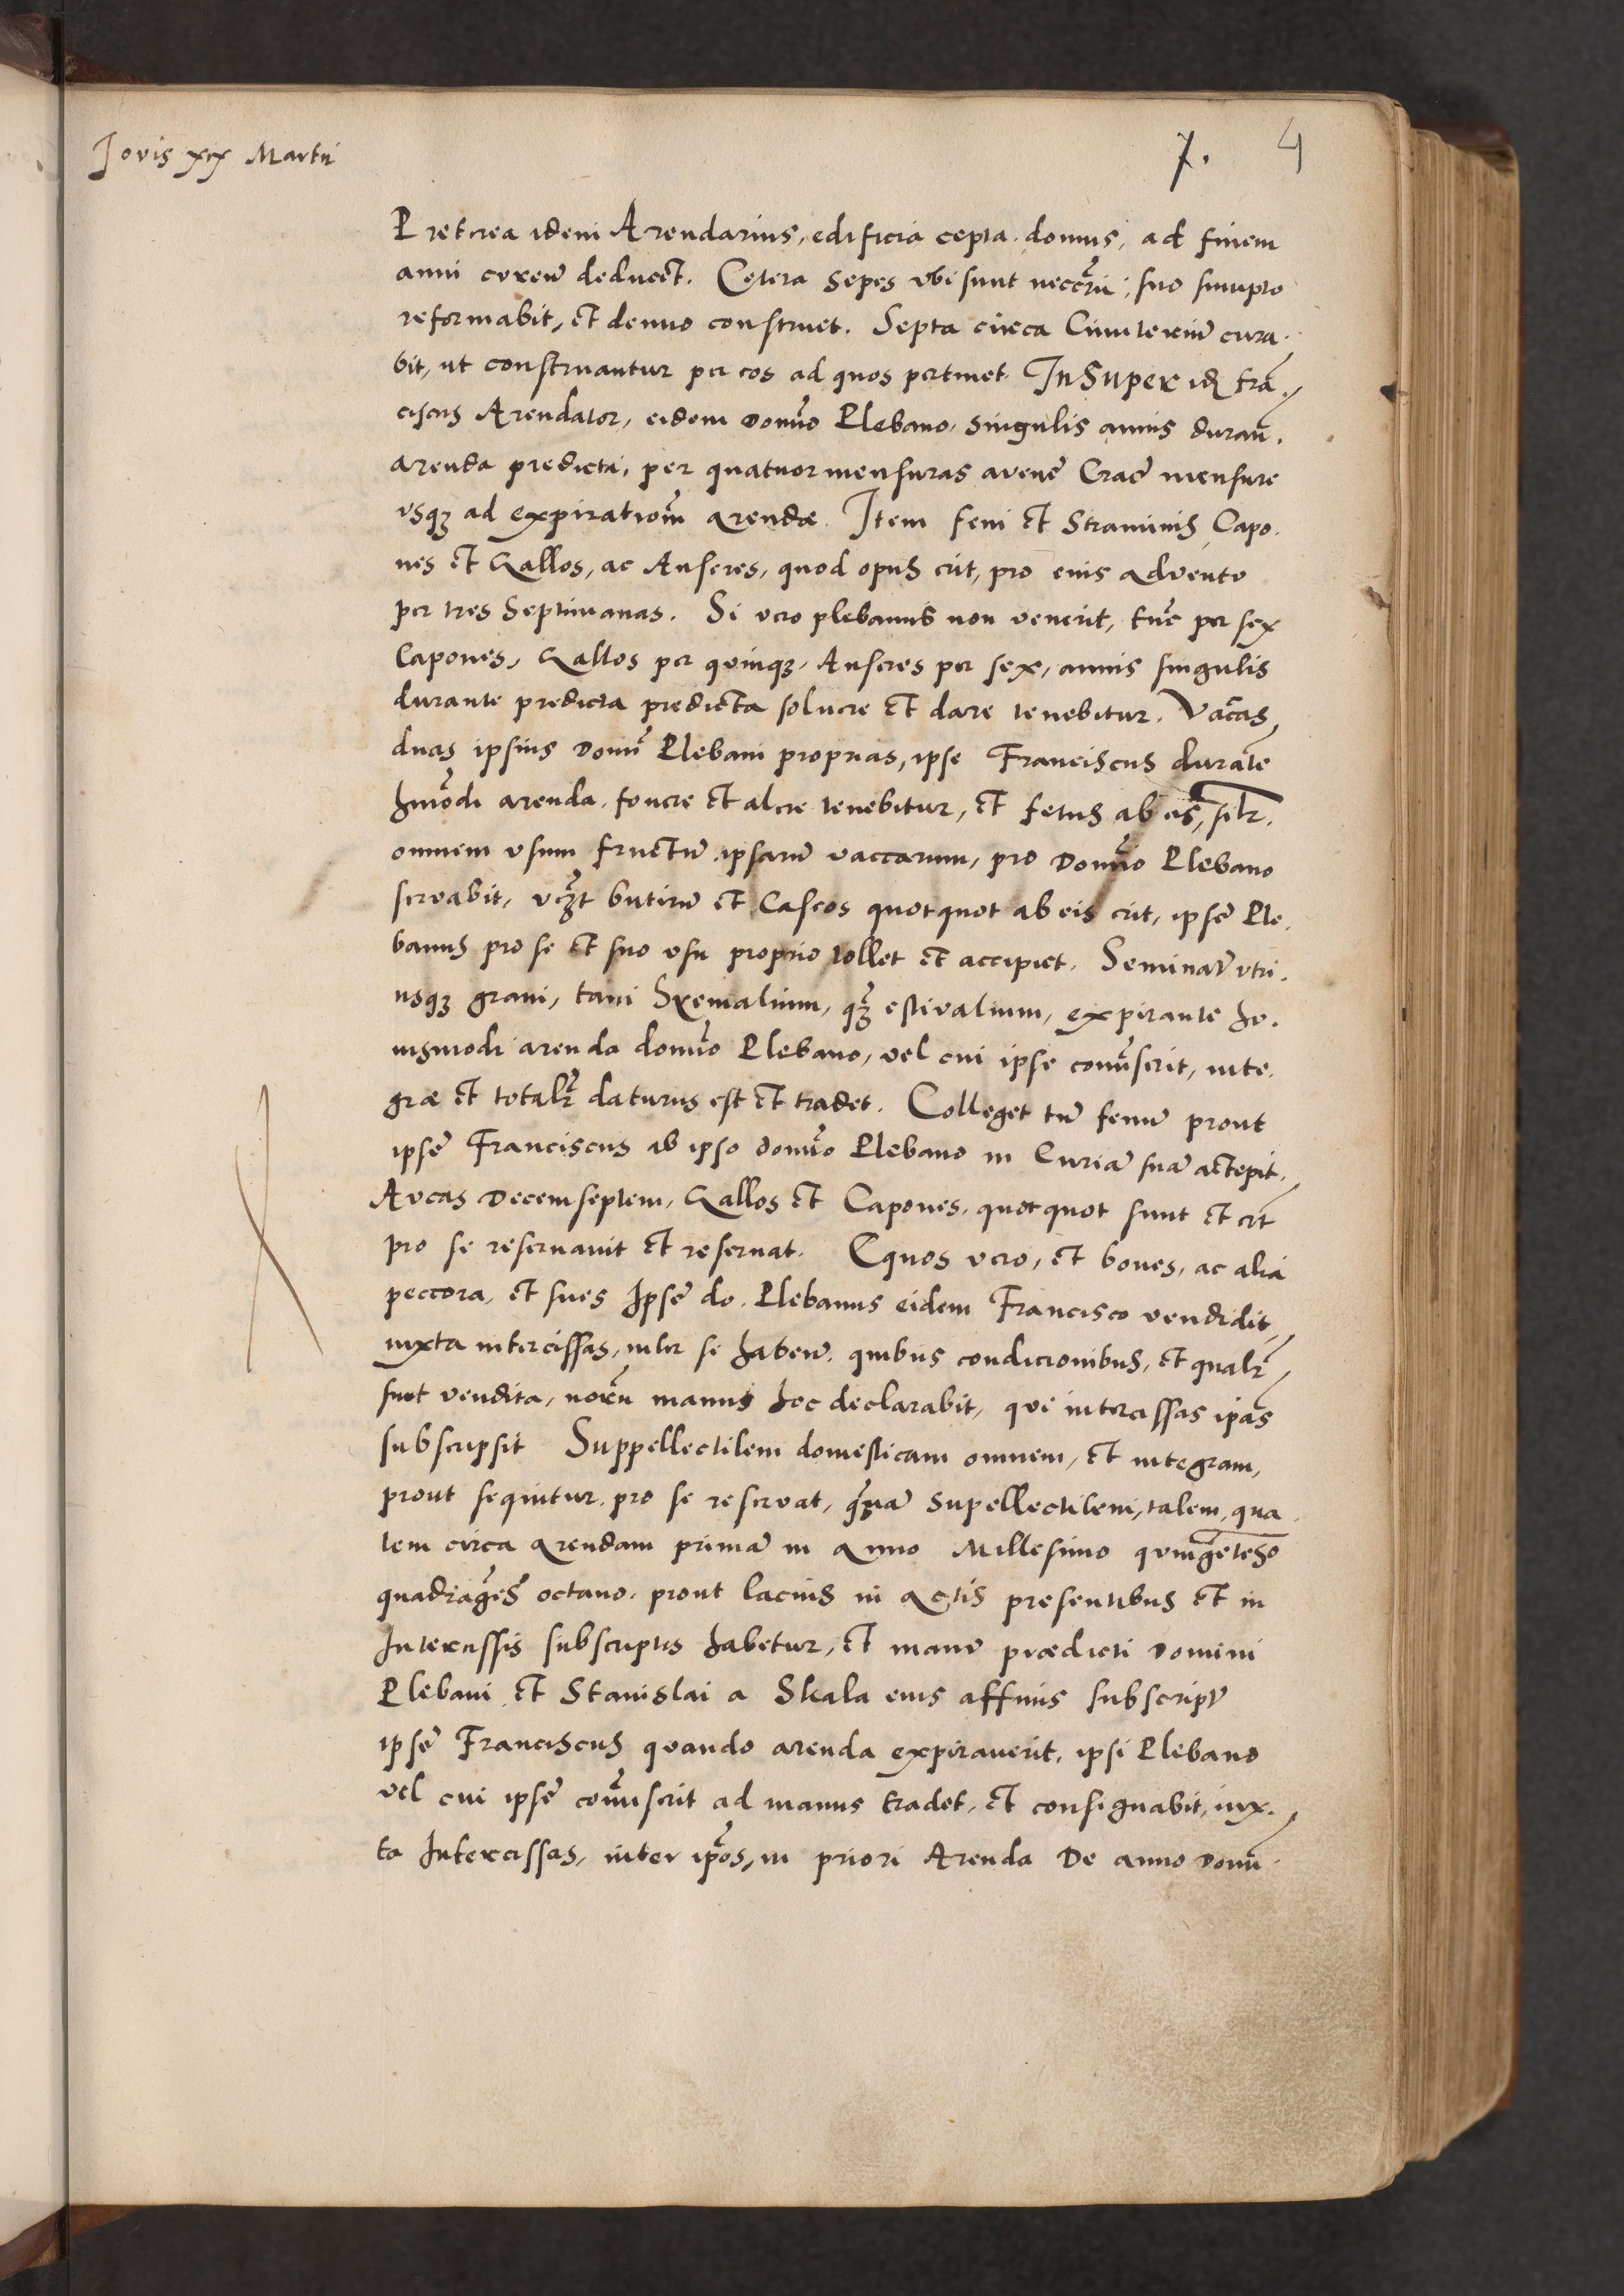 Jovis xix Martii
7. 4
Pretcrea idem Arendarius, edificia cepta domus, ad finem
anni curen̄ deducet. Cetera Sepes vbi sunt necc̄rii, suo sumpto
reformabit, et denuo construet. Septa circa Cimiteriū cura.
bit, ut construantur per eos ad quos pertinet. InSuper idē Frā
ciscus Arendator, eidem Domīno Plebano, Singulis annis duran̄.
arenda predicta, per quatuor mensuras avene Crac̄ mensure
vsqꝫ ad expirationē arendæ. Item feni et Straminis, Capo.
nes et Gallos, ac Anseres, quod opus erit, pro eius adventu
per tres Septimanas. Si vero plebanus non venerit, tūc per sex
Capones, Gallos per quinqꝫ, Anseres per sex, annis singulis
durante predicta predicta soluere et dare tenebitur. Vacās
duas ipsius Domī Plebani proprias, ipse Franciscus durāte
hmōdi arenda, fouere et alere tenebitur, et fetus ab eis, silr̄.
omnem usum fructū ipsarū vaccarum, pro Domīno Plebano
servabit, vꝫt butirū et Caseos quotquot ab eis erit, ipsē Ple.
banus pro se et suo usu proprio tollet et accipiet. Seminaꝛ̄ vtri.
usqꝫ grani, tam Hyemalium, qꝫ̄ estivalium, expirante hu.
iusmodi arenda domīno Plebano, vel cui ipse comīserit, inte.
græ et totalr̄ daturus est et tradet. Colleget tū fenū prout
ipsē Franciscus ab ipso domīno Plebano in Curiā suā accepit.
Avcas Decem septem, Gallos et Capones, quotquot sunt et erūt
pro se reseruauit et reseruat. Equos vero, et boues, ac alia
peccora, et sues Ipsē do. Plebanus eidem Francisco vendidit,
iuxta intercissas, inter se haben̄. quibus condicionibus, et qualr̄
sunt vendita, manus hec declarabit, qui intercissas ipās
subscripsit Suppellectilem domesticam omnem, et integram,
prout sequitur, pro se reservat, Supellectilem, talem, qua
lem circa arendam primā in Anno Millesimo quingētesīo
quadragēs̄ octauo, prout lacius in Actis presentibus et in
Intercissis subscriptis habetur, et manu prædicti Domini
Plebani et Stanislai a Skala eius affinis subscripꝭ
ipsē Franciscus quando arenda expirauerit, ipsi Plebano
vel cui ipsē comīserit ad manus tradet, et consignabit, iux.
ta Intercissas, inter ipōs, in priori Arenda De anno Domī